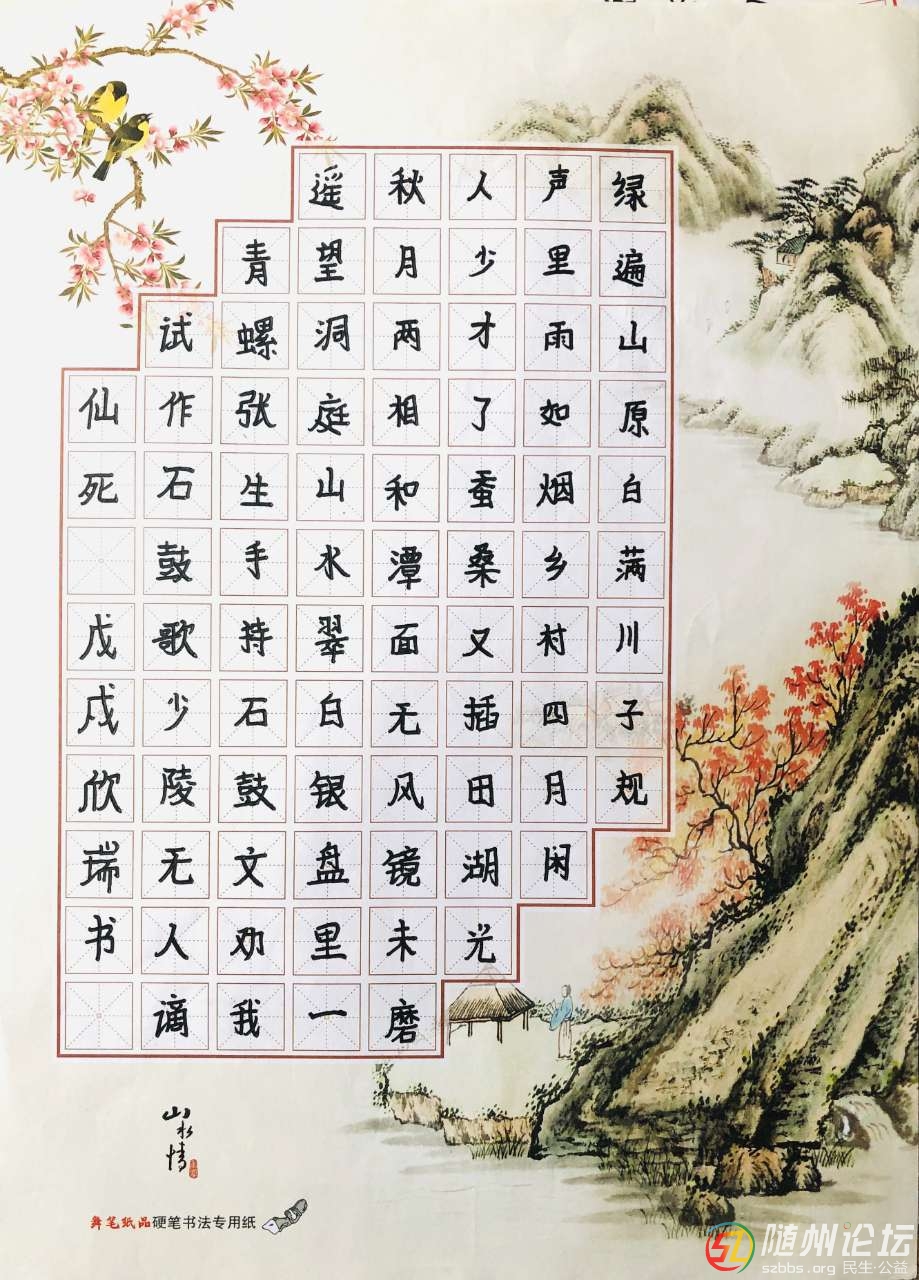 绿遍山原白满川子规
声里雨如烟乡村四月闲
人少才了蚕桑又插田湖光
秋月两相和潭面无风镜未磨
遥望洞庭山水翠白银盘里一
青螺张生手持石鼓文劝我
试作石鼓歌少陵无人谪
仙死 戊戍欣瑞书
山水情
舞笔纸品硬笔书法专用纸
随州论坛
szbbs.org 民生·公益